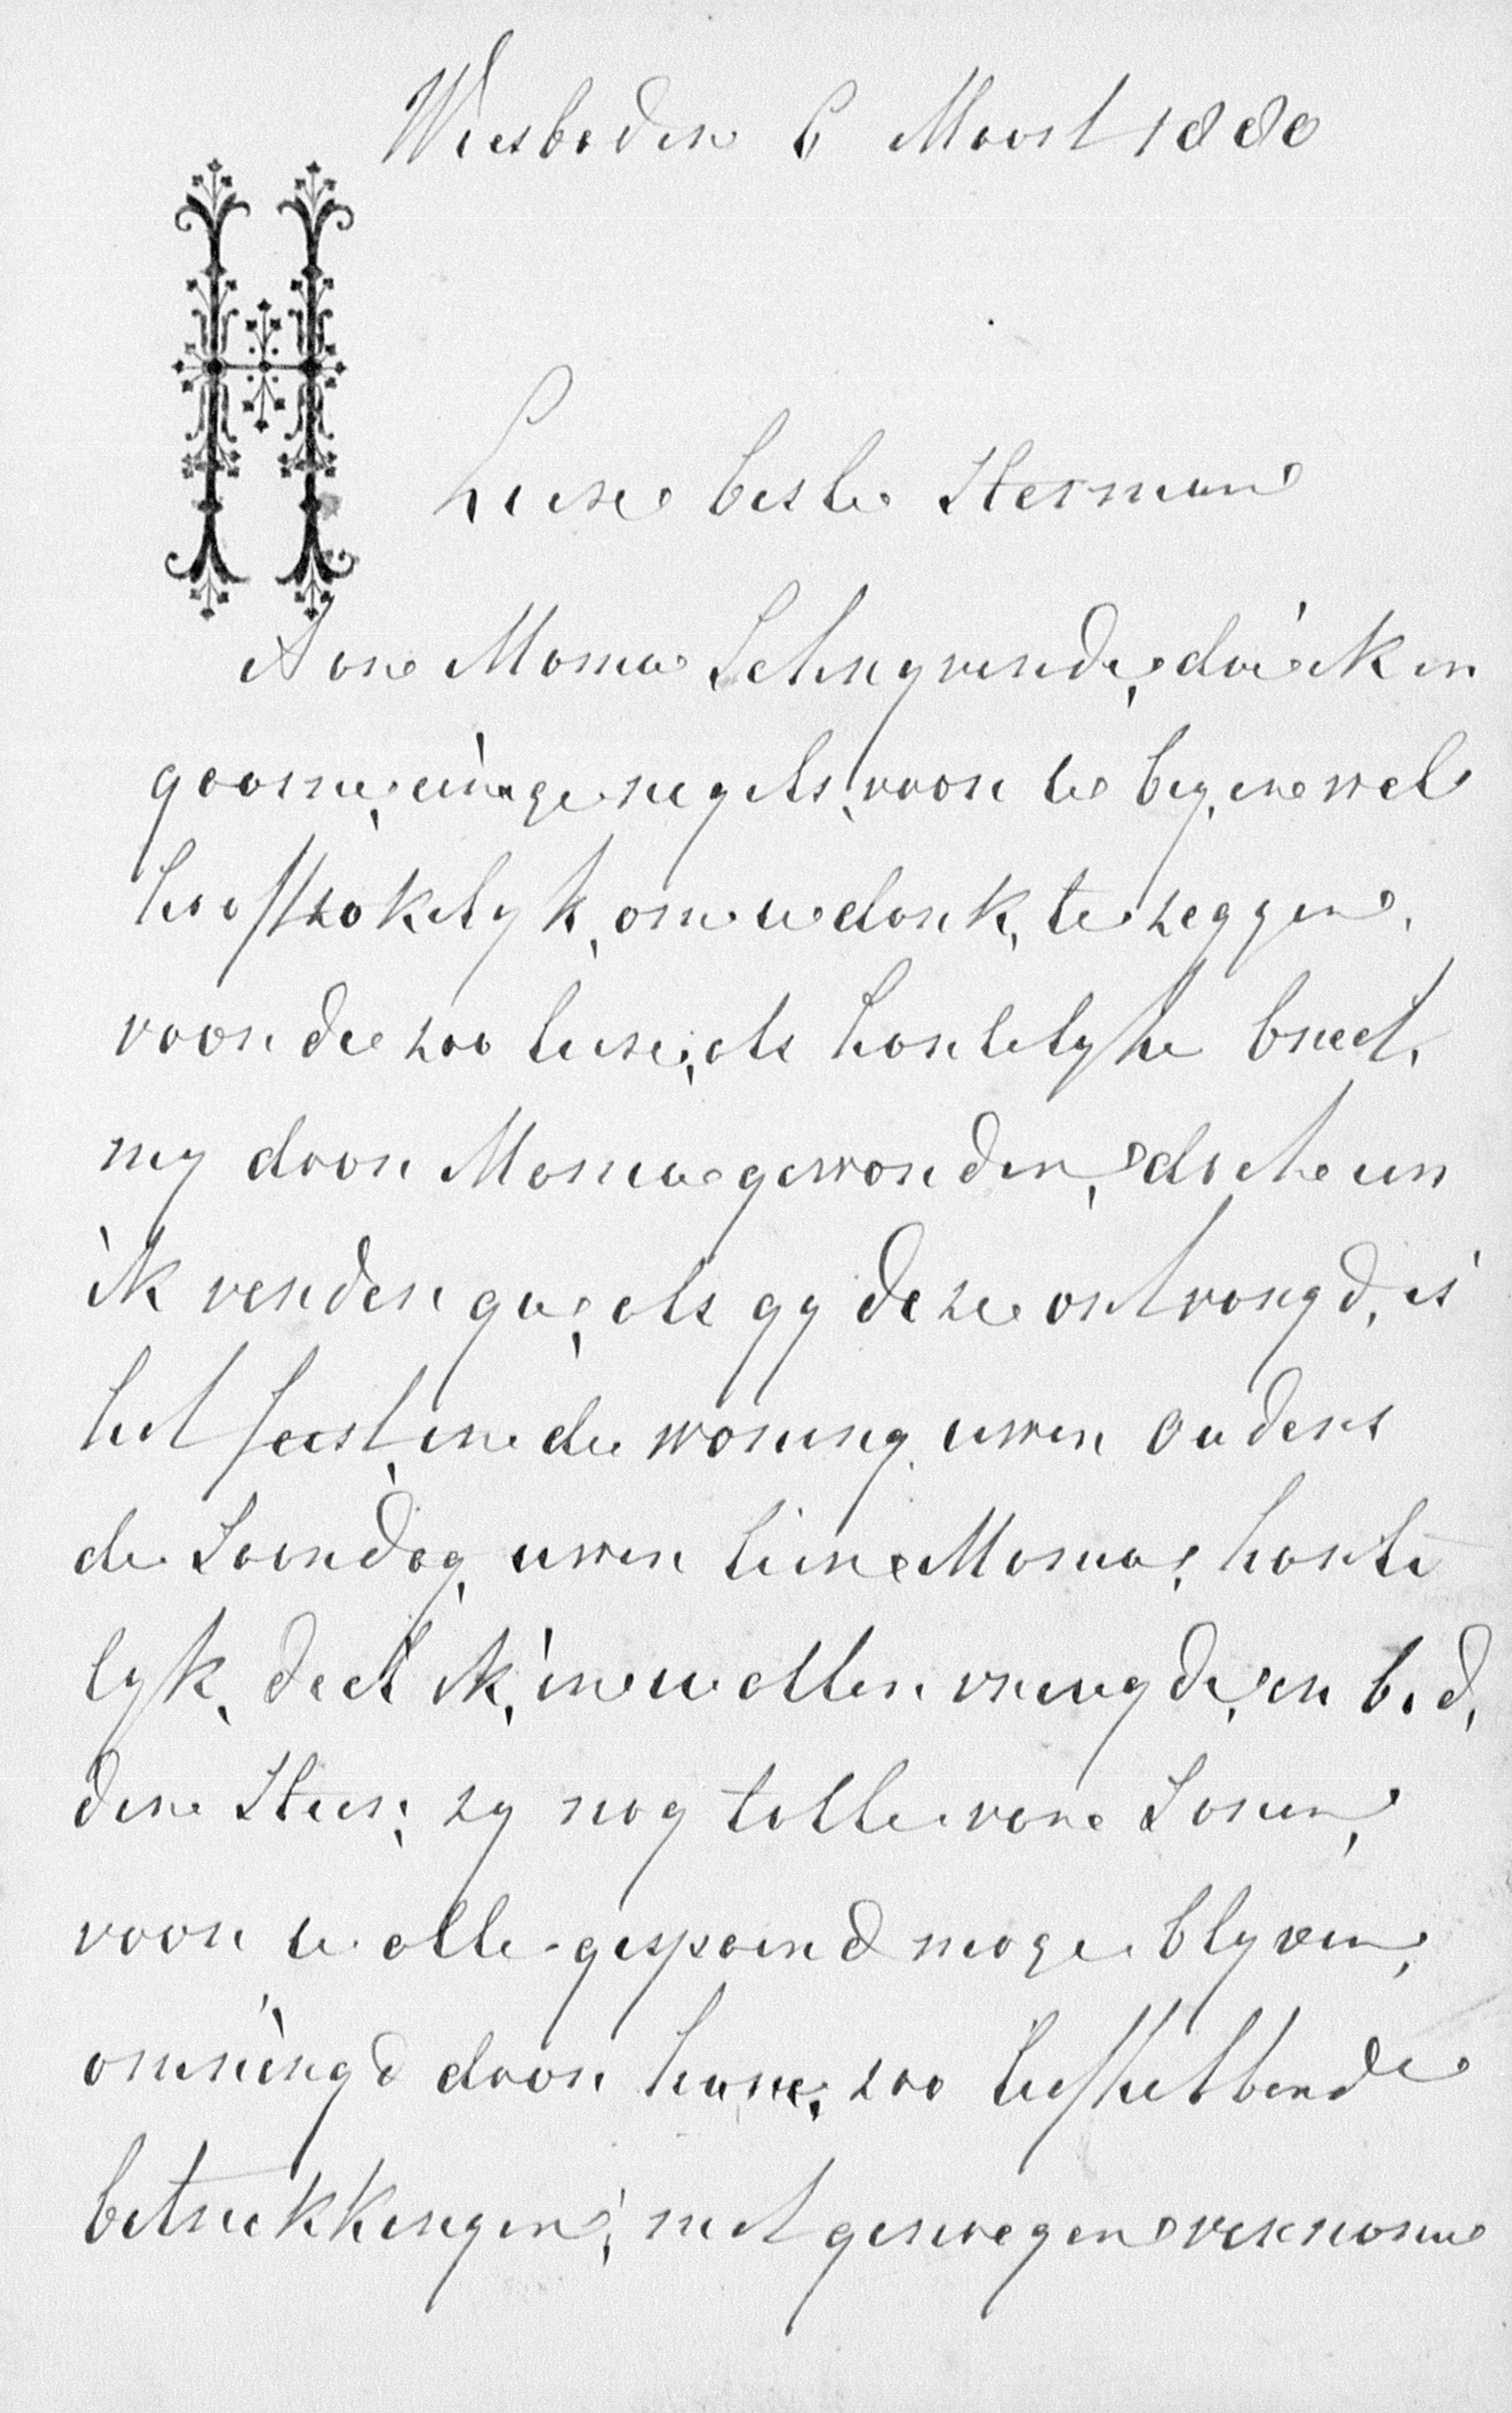 Wiesbaden 6 Maart 1880
H
Lieve beste Herman
Aan Mama schryvende, doe ik er
gaarne, einige regels, voor u by, en wel
hoofdzakelyk, om u dank, te zeggen,
voor de zoo lieve, als hartelyke brief,
my door Mama geworden, dacht een
ik verder ga, als gy deze ontvangd, is
het feest, in de woning, uwer Ouders
de Jaardag, uwer lieve Mama, harte
lyk, deel ik, in u aller vreugde, en bid,
den Heer, zy nog tallee van Jaren,
voor u alle gespaard moge blyven,
omringd door hare, zoo liefhebbende
betrekkingen, met genoegen vernome